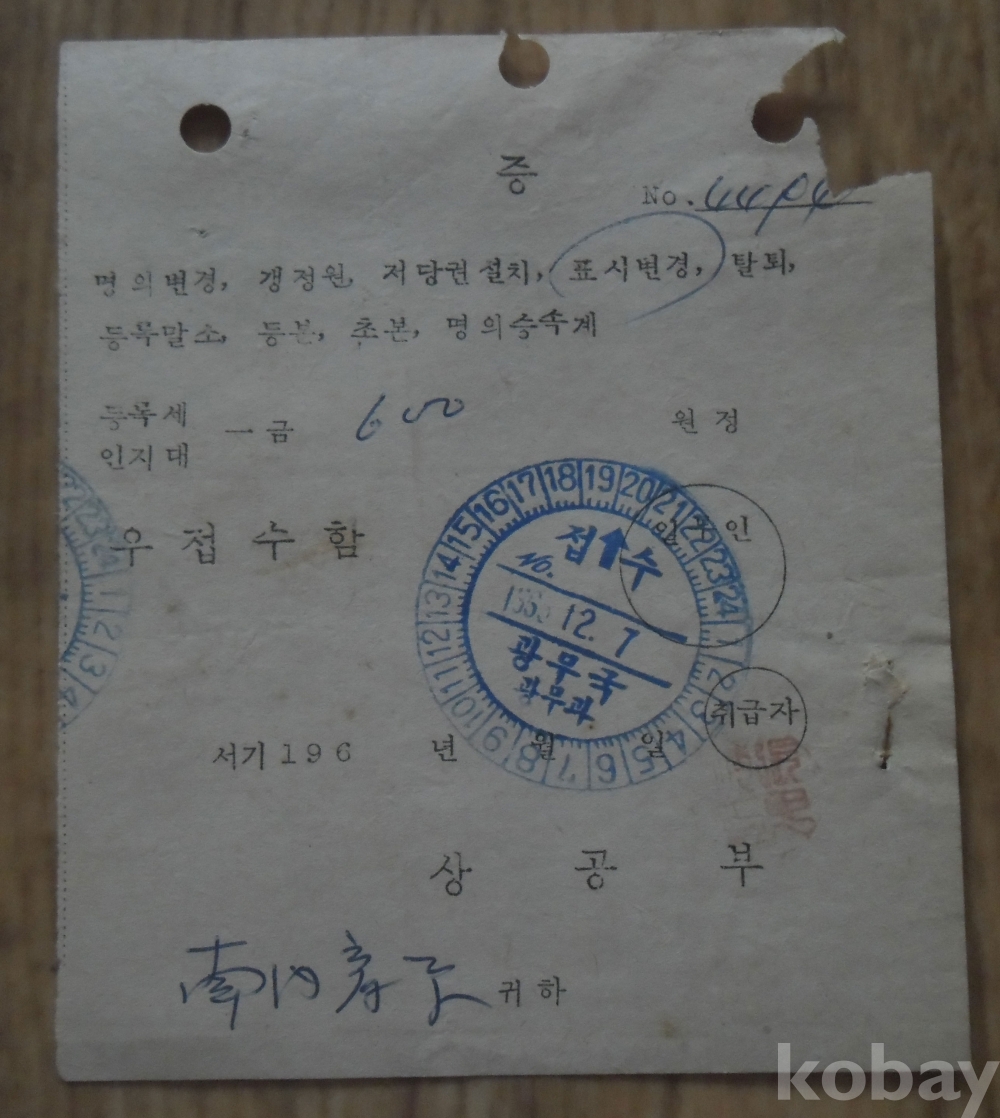 증
No.
명의변경, 갱정원, 저당권설치, 표시변경, 탈퇴,
등록말소, 등본, 초본, 명의승속계
등록세
인지대
一금 600 원정
우접수함
인
접수
No.
12. 7
광무국
광무과
12 13 14 15 16 17 18 19 20 21 22 23 24 1 2 3 4 5 6 7 8 9 10 11
22 23 24 1 2 3 4
취급자
서기 196 년 월 일
상공부
귀하
kobay